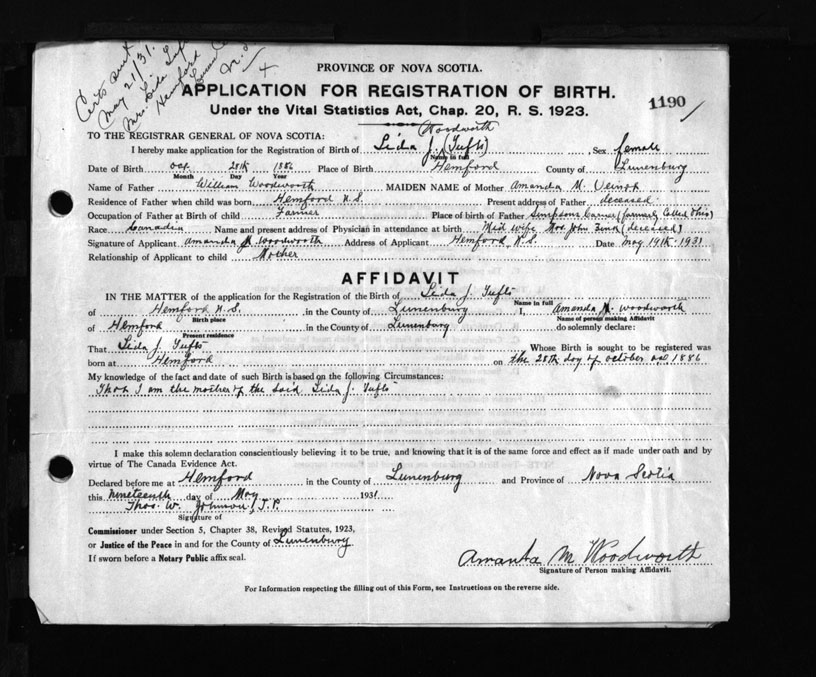 Certs sent
May 21/31.
Mrs Lida Tufts
Hemford
PROVINCE OF NOVA SCOTIA.
APPLICATION FOR REGISTRATION OF BIRTH.
1190
Under the Vital Statistics Act, Chap. 20, R. S. 1923.
Woodworth
TO THE REGISTRAR GENERAL OF NOVA SCOTIA:
I hereby make application for the Registration of Birth of Lida J. (Tufts), Sex female
Name in full
Date of Birth Oct. 28th 1886 Place of Birth Hemford County of Lunenburg
Month Day Year
Name of Father William Woodworth MAIDEN NAME of Mother Amanda M. Veinot
Residence of Father when child was born Hemford N.S. Present address of Father deceased
Occupation of Father at Birth of child Farmer Place of birth of Father Simpsons Corner (formerly Called Ohio)
Race Canadian Name and present address of Physician in attendance at birth Mid wife Mrs. John Zink (deceased)
Signature of Applicant Amanda M Woodworth Address of Applicant Hemford, N.S. Date May 19th 1931
Relationship of Applicant to child Mother
AFFIDAVIT
IN THE MATTER of the application for the Registration of the Birth of Lida J. Tufts
Name in full
of Hemford N.S. in the County of Lunenburg I, Amanda M. Woodworth
Birth place Name of person making Affidavit
of Hemford in the County of Lunenburg do solemnly declare:
Present residence
That Lida J. Tufts Whose Birth is sought to be registered was
born at Hemford on the 28th day of October A.D. 1886
My knowledge of the fact and date of such Birth is based on the following Circumstances:
That I am the mother of the said Lida J. Tufts
I make this solemn declaration conscientiously believing it to be true, and knowing that it is of the same force and effect as if made under oath and by
virtue of The Canada Evidence Act.
Declared before me at Hemford in the County of Lunenburg and Province of Nova Scotia
this nineteenth day of May 1931
Thos. W. Johnson, J.P.
Signature of
Commissioner under Section 5, Chapter 38, Revised Statutes, 1923,
or Justice of the Peace in and for the County of Lunenburg
If sworn before a Notary Public affix seal.
Amanta M Woodworth
Signature of Person making Affidavit.
For Information respecting the filling out of this Form, see Instructions on the reverse side.